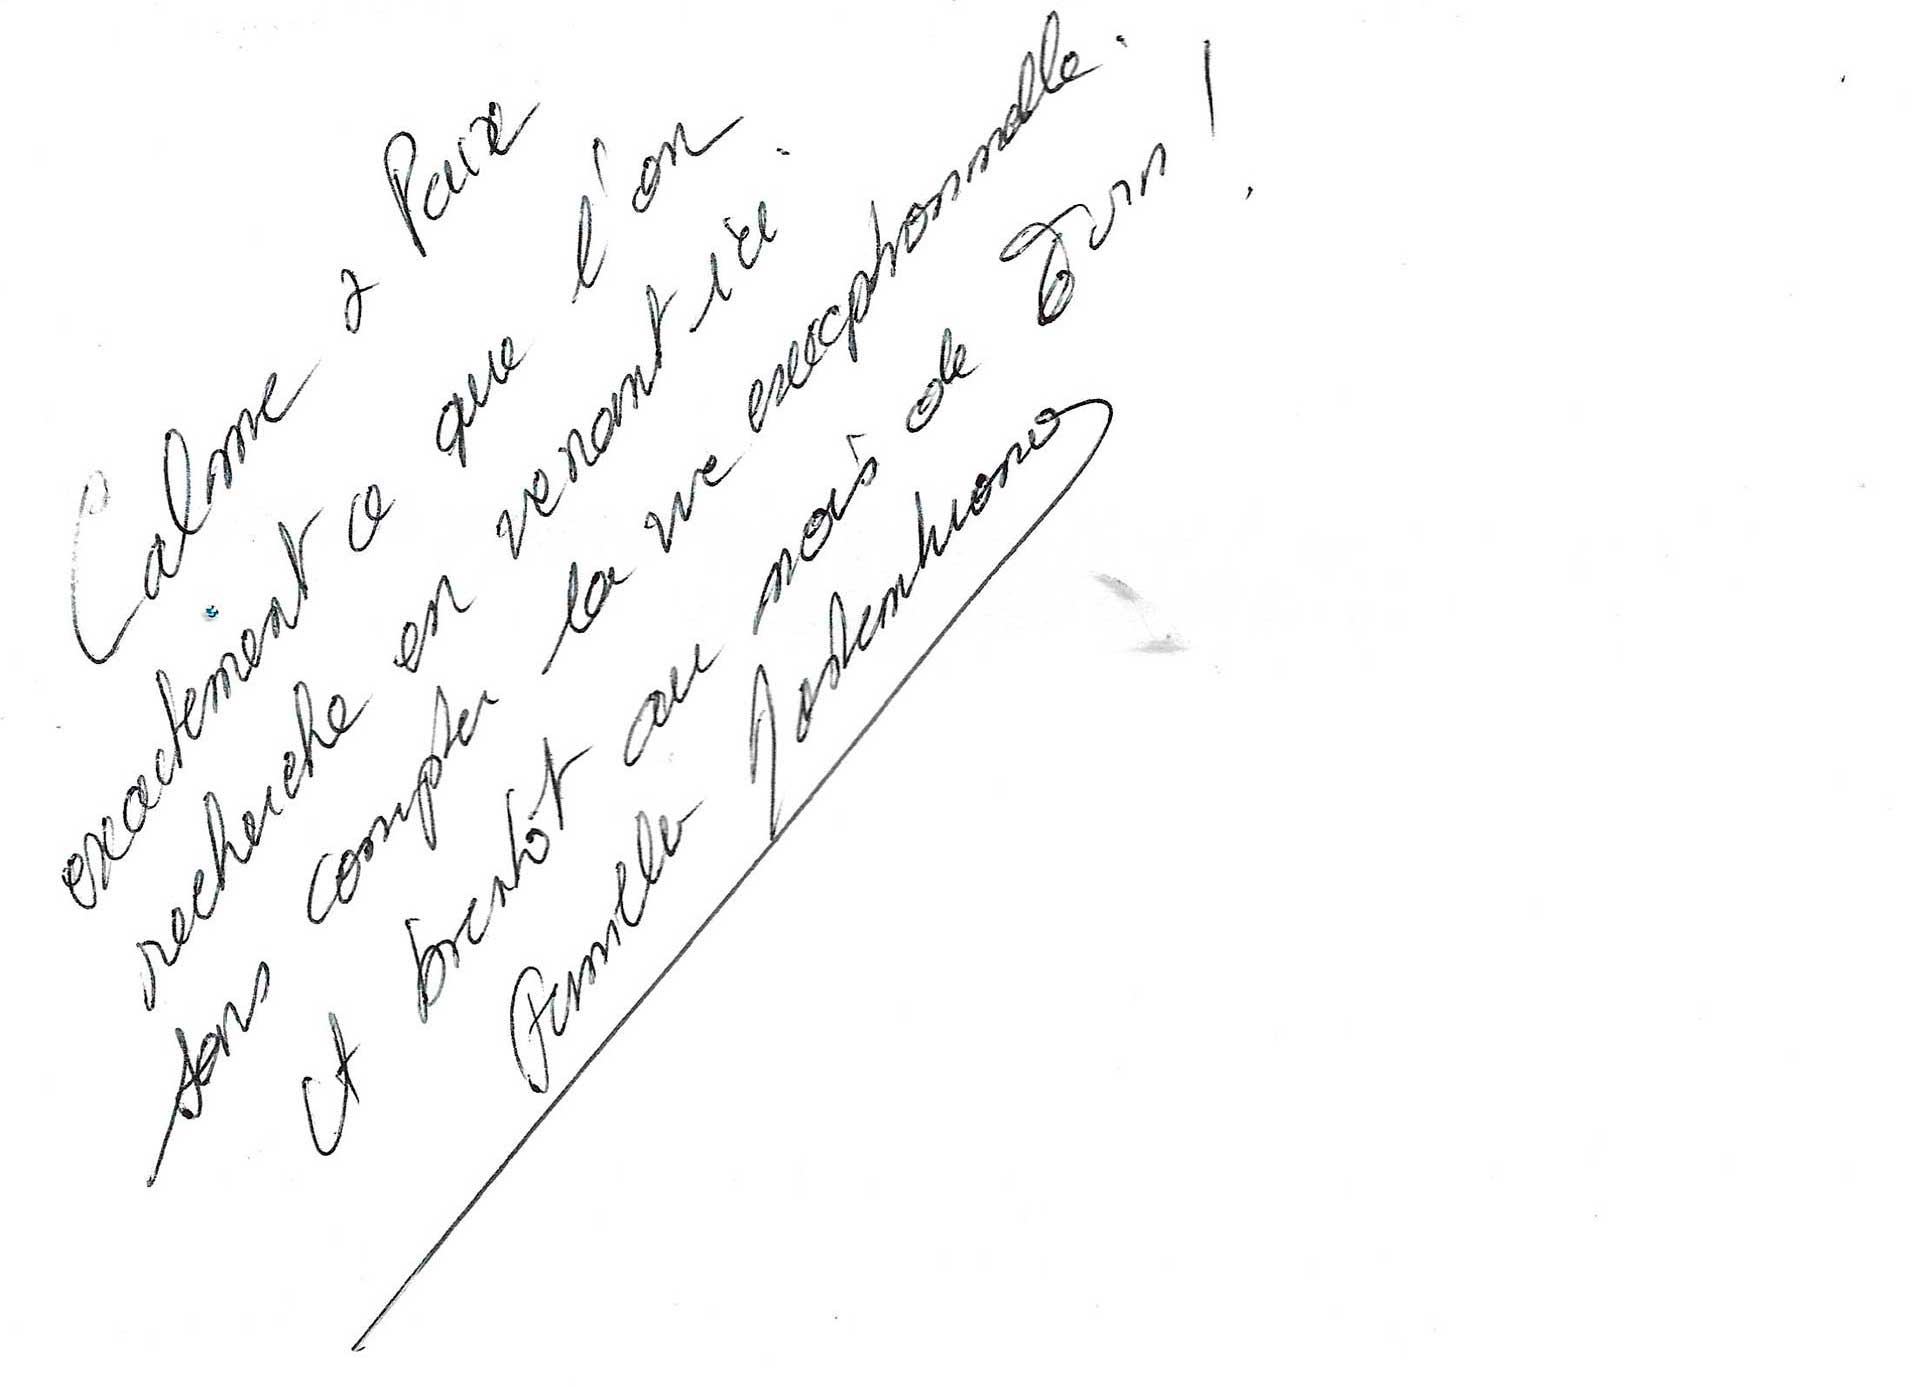 Calme & Paix
exactement ce que l'on
recherche en venant ici.
sans compter la vue exceptionnelle.
et bientôt au mois de Juin !
Famille